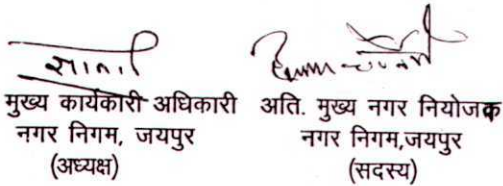 मुख्य कार्यकारी अधिकारी
नगर निगम, जयपुर
(अध्यक्ष)
अति. मुख्य नगर नियोजक
नगर निगम,जयपुर
(सदस्य)